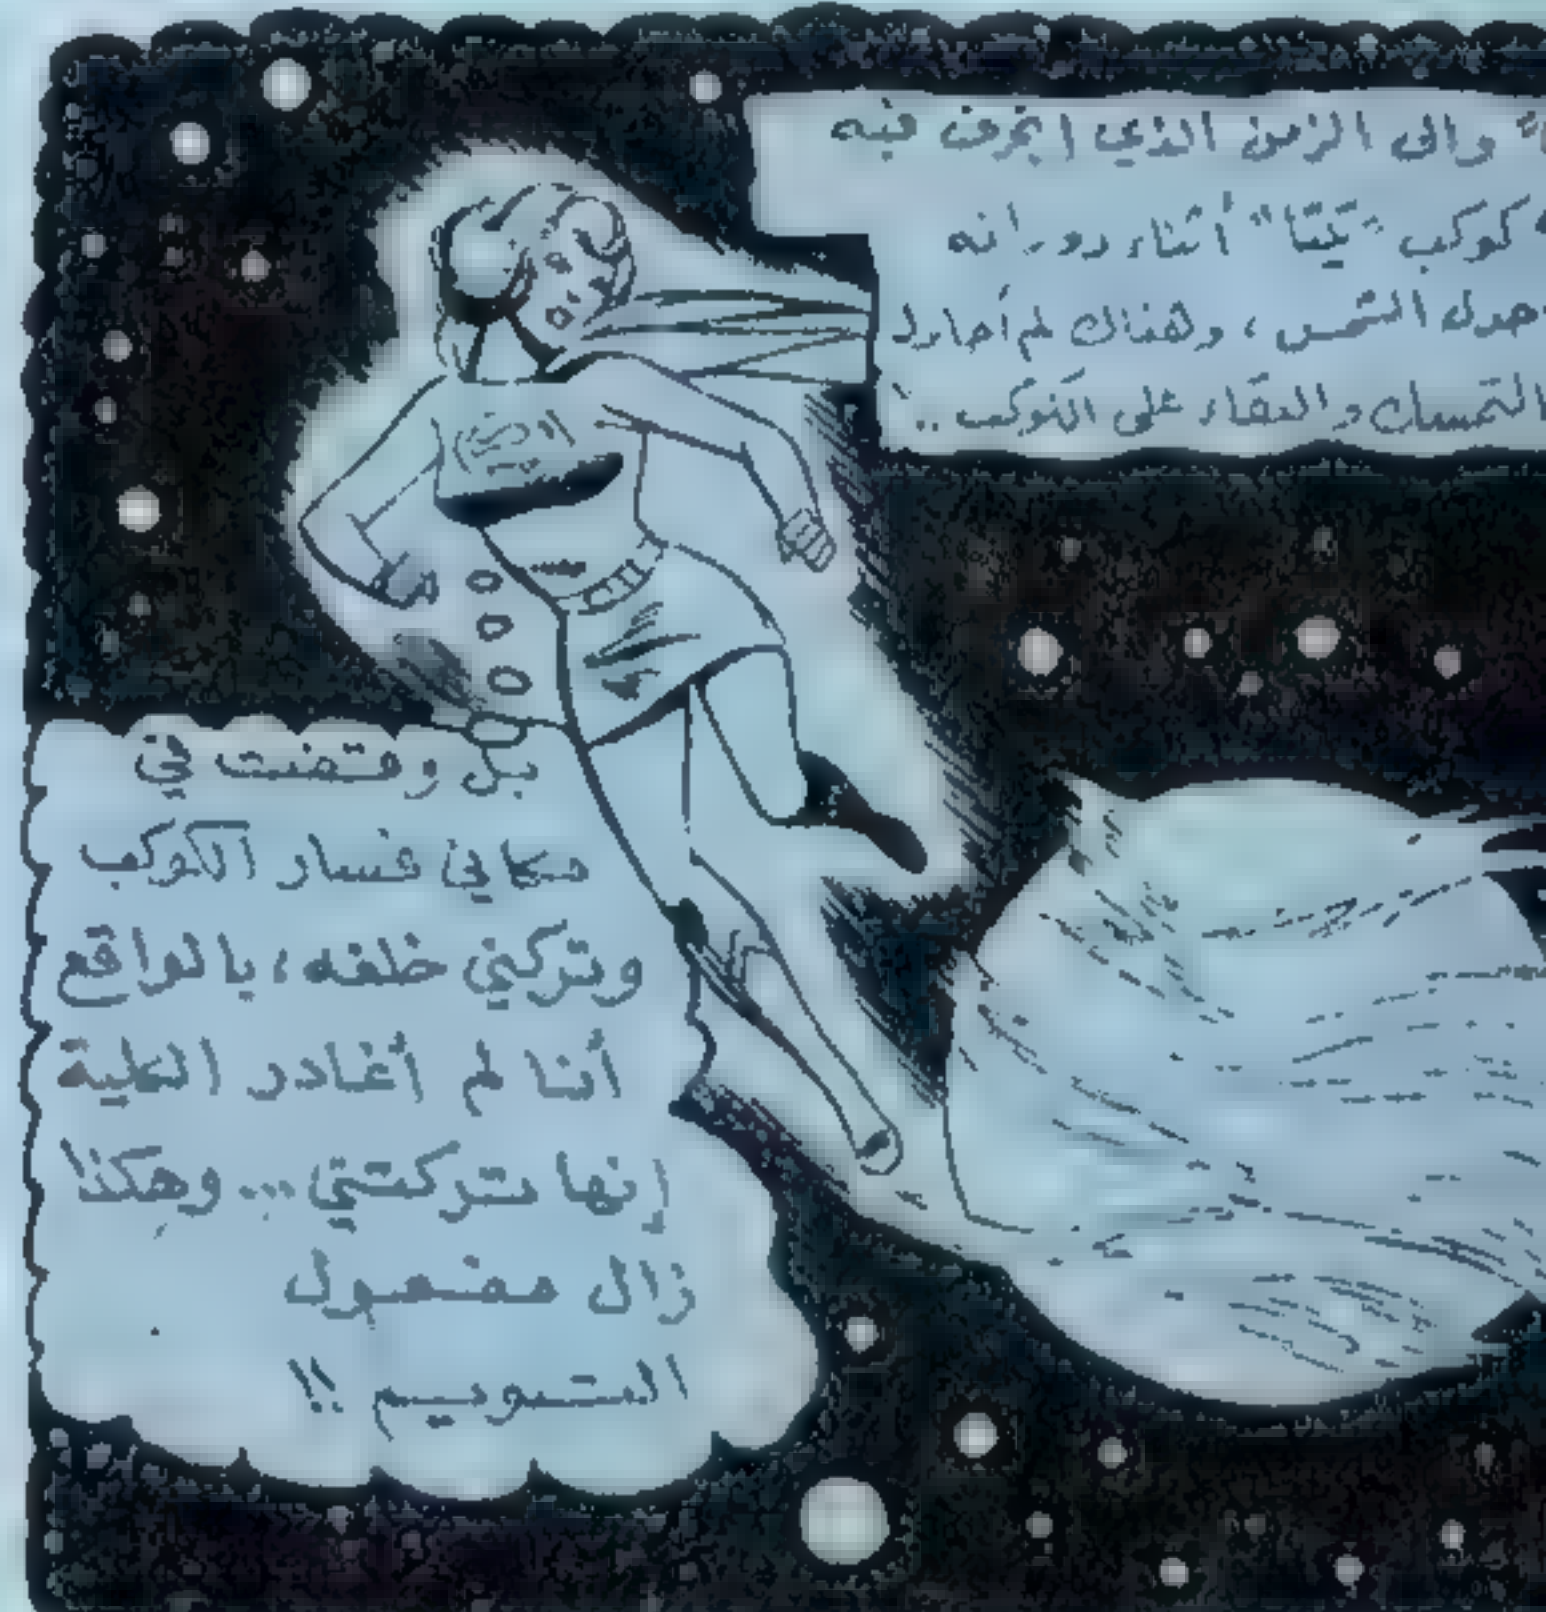 والى الزمن الذي انحرف فيه
كوكب "تيتا" أثناء دورانه
حول الشمس ، وهناك لم أحاول
التمسك والبقاء على الكوكب ..
بل وقفت في
مكاني فسار الكوكب
وتركني خلفه ، بالواقع
أنا لم أغادر الكلية
إنها تركتني ... وهكذا
زال مفعول
التنويم !!